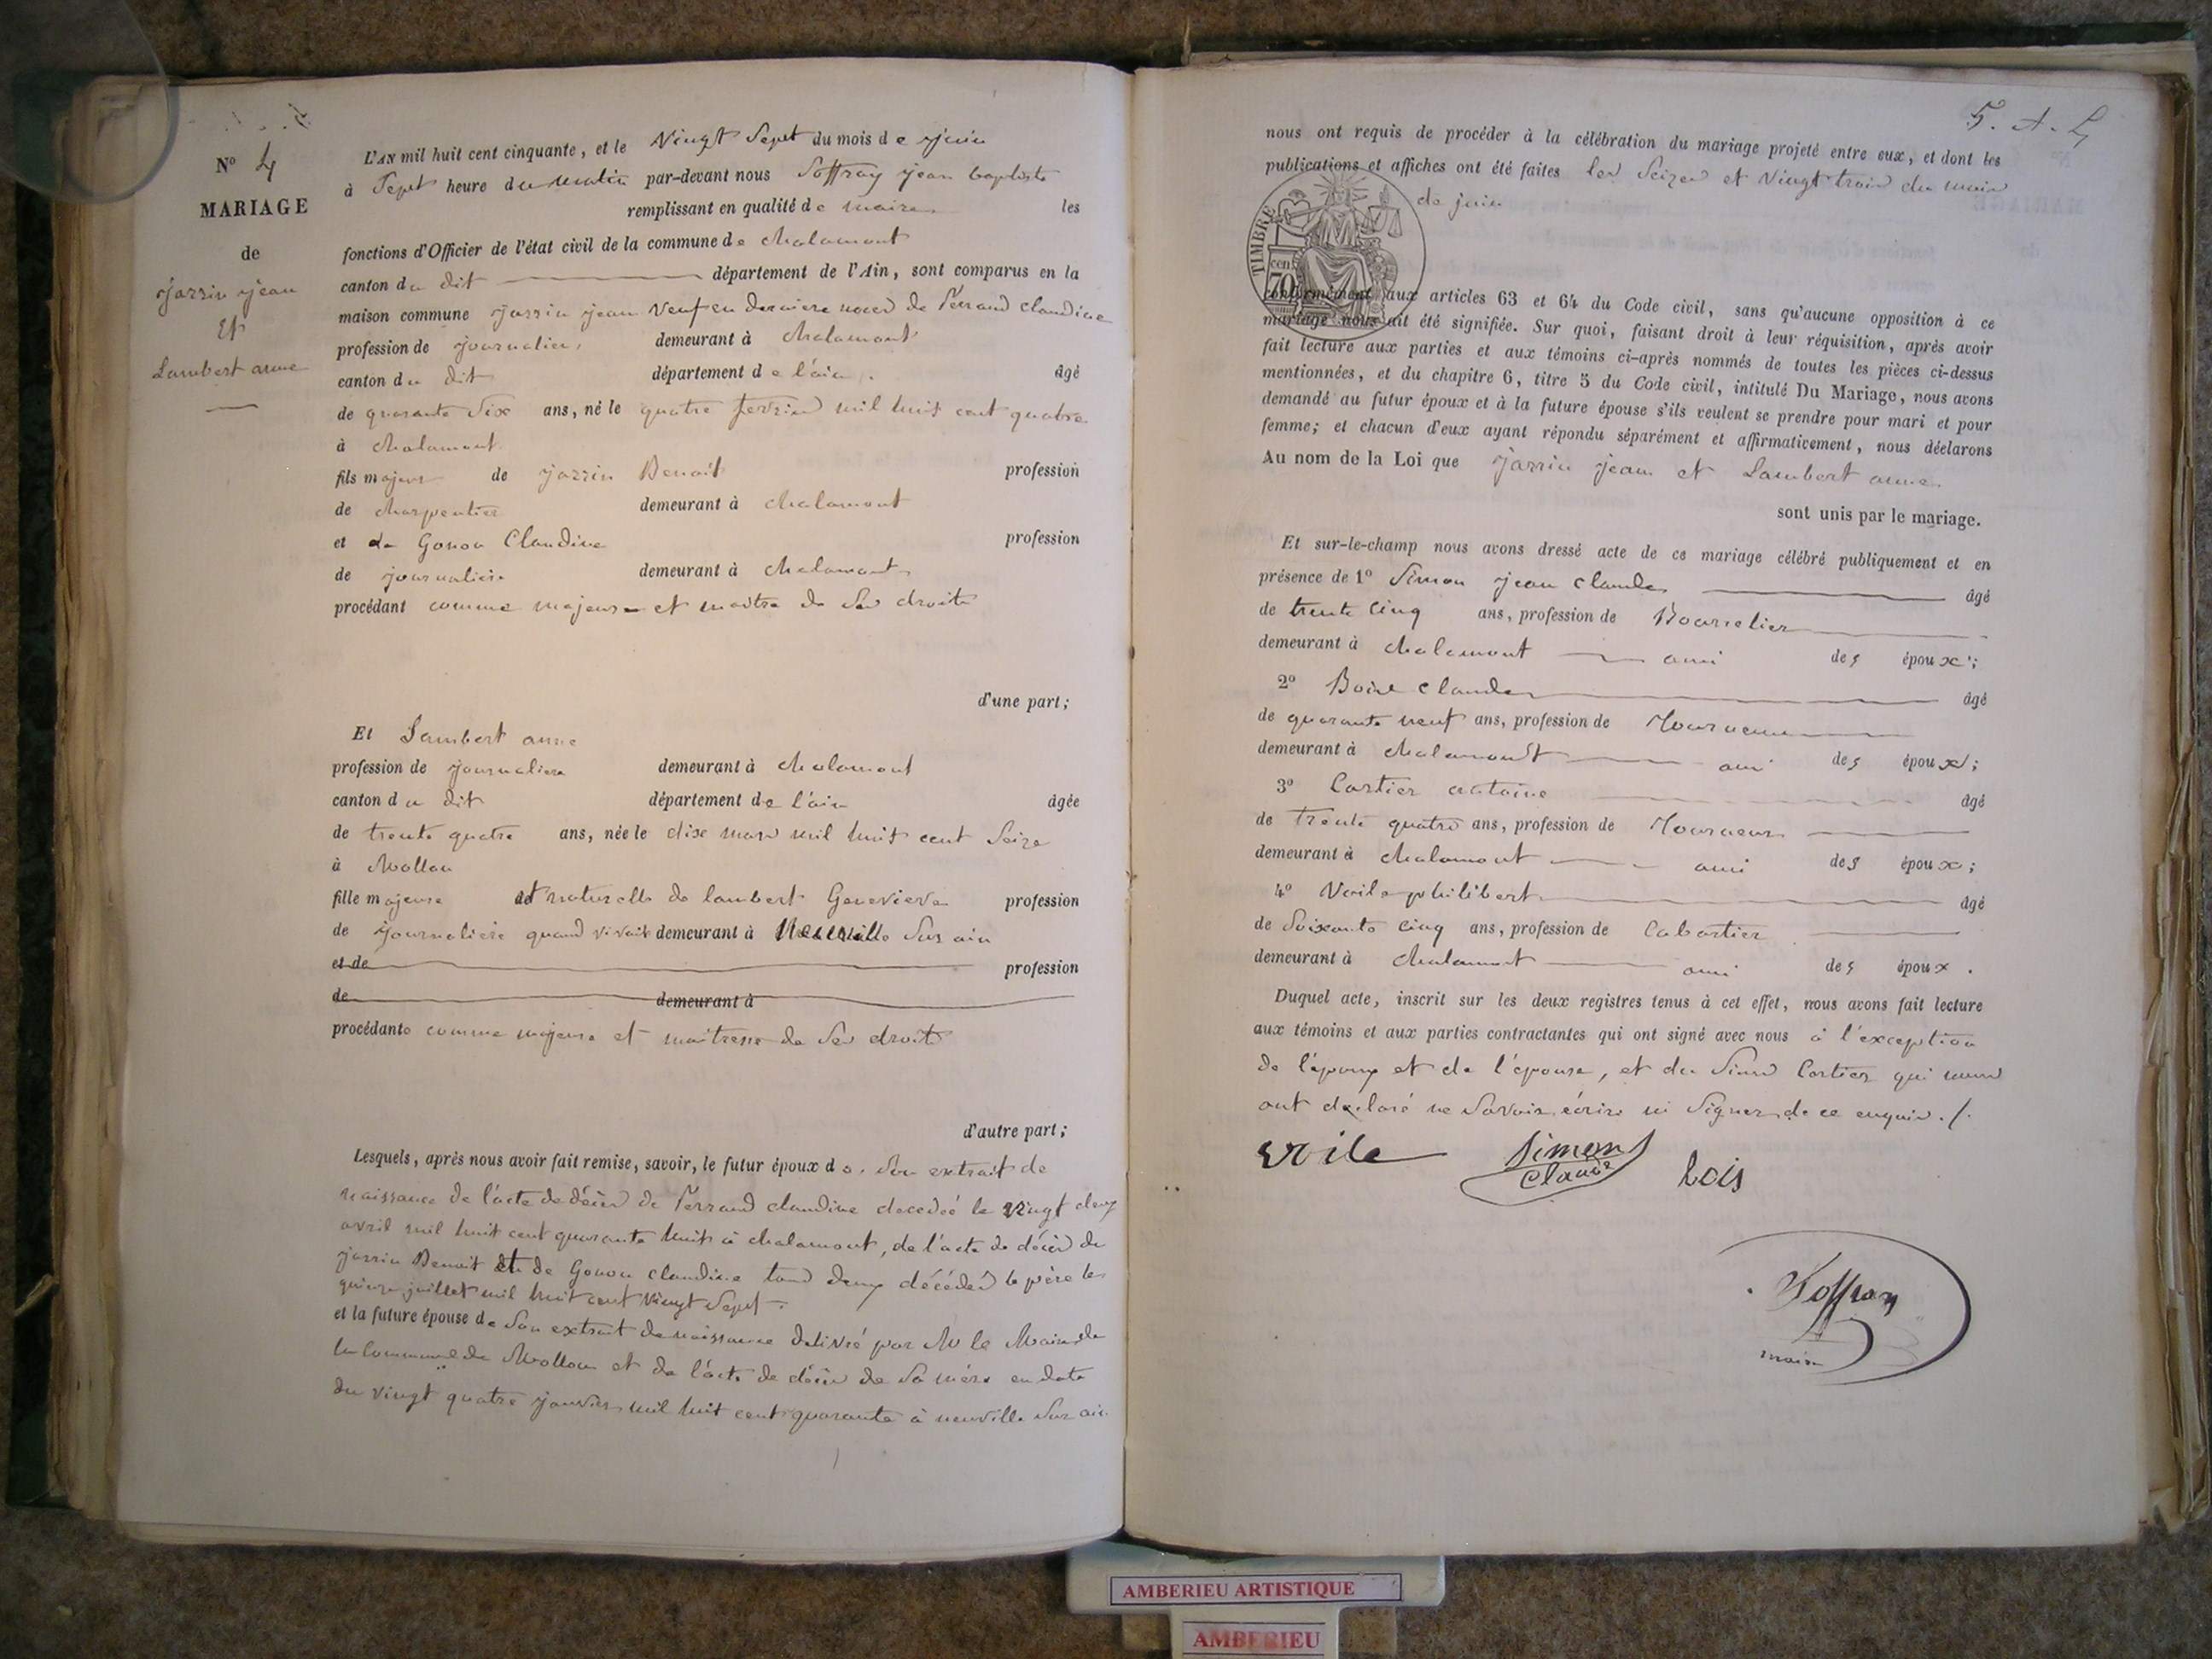 N° 4
MARIAGE
de
jarrin jean
Et
Lambert anne
L'AN mil huit cent cinquante, et le Vingt Sept du mois de juin
à Sept heure du matin par-devant nous Soffray jean baptiste
remplissant en qualité de maire les
fonctions d'Officier de l'état civil de la commune de chalamont
canton du dit département de l'Ain, sont comparus en la
maison commune jarrin jean Veuf en derniere noces de ferrand claudine
profession de journalier demeurant à chalamont
canton du dit département de l'ain. âgé
de quarante Six ans, né le quatre fevrier mil huit cent quatre
à chalamont
fils majeur de jarrin Benoit profession
de charpentier demeurant à chalamont
et de Gonon Claudine profession
de journaliere demeurant à chalamont
procédant comme majeur et maitre de Ses droits
d'une part;
Et Lambert anne
profession de journaliere demeurant à chalamont
canton du dit département de l'ain âgée
de trente quatre ans, née le dixe mars mil huit cent Seize
à Mollon
fille majeure et naturelle de lambert Genevieve profession
de journaliere quand vivait demeurant à Neuville Sur ain
et de profession
de demeurant à
procédante comme majeure et maitresse de Ses droits
d'autre part;
Lesquels, après nous avoir fait remise, savoir, le futur époux de Son extrait de
naissance de l'acte de décès de ferrand claudine decedeé le vingt deux
avril mil huit cent quarante huit à chalamont, de l'acte de décès de
jarrin Benoit et de Gonon claudine tous deux décédés le père le
quinze juillet mil huit cent Vingt Sept.
et la future épouse de Son extrait de naissance delivré par M le Maire de
la Commune de Mollon et de l'acte de décès de Sa mère en date
du vingt quatre janvier mil huit cent quarante à neuville Sur ain
nous ont requis de procéder à la célébration du mariage projeté entre eux, et dont les
publications et affiches ont été faites les Seize et Vingt trois du mois
de juin
TIMBRE
cent
70
conformément aux articles 63 et 64 du Code civil, sans qu'aucune opposition à ce
mariage nous ait été signifiée. Sur quoi, faisant droit à leur réquisition, après avoir
fait lecture aux parties et aux témoins ci-après nommés de toutes les pièces ci-dessus
mentionnées, et du chapitre 6, titre 5 du Code civil, intitulé Du Mariage, nous avons
demandé au futur époux et à la future épouse s'ils veulent se prendre pour mari et pour
femme; et chacun d'eux ayant répondu séparément et affirmativement, nous déclarons
Au nom de la Loi que jarrin jean et Lambert anne
sont unis par le mariage.
Et sur-le-champ nous avons dressé acte de ce mariage célébré publiquement et en
présence de 1° Simon jean claude âgé
de trente Cinq ans, profession de Bourrelier
demeurant à chalamont ami des époux;
2° Bois claude âgé
de quarante neuf ans, profession de
demeurant à chalamont ami des époux;
3° Cartier antoine âgé
de Trente quatre ans, profession de
demeurant à chalamont ami des époux;
4° Voile philibert âgé
de Soixante Cinq ans, profession de Cabartier
demeurant à chalamont ami des époux.
Duquel acte, inscrit sur les deux registres tenus à cet effet, nous avons fait lecture
aux témoins et aux parties contractantes qui ont signé avec nous à l'exception
de l'époux et de l'épouse, et du Sieur Cartier qui
ont déclaré ne Savoir écrire ni Signer de ce enquis./.
voile Simon Claude bois
Soffray
maire
AMBERIEU ARTISTIQUE
AMBERIEU